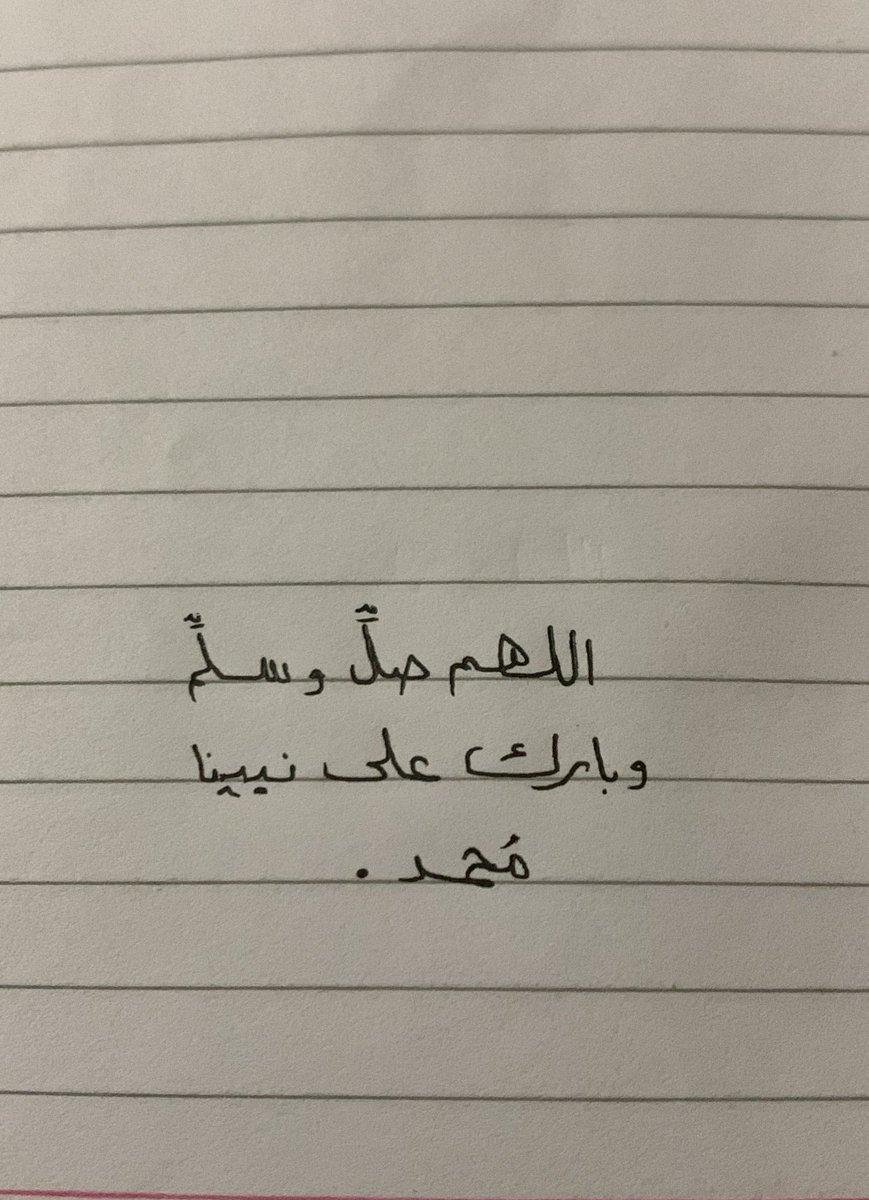 اللهم صلِّ وسلِّم
وبارك على نبينا
مُحمد .